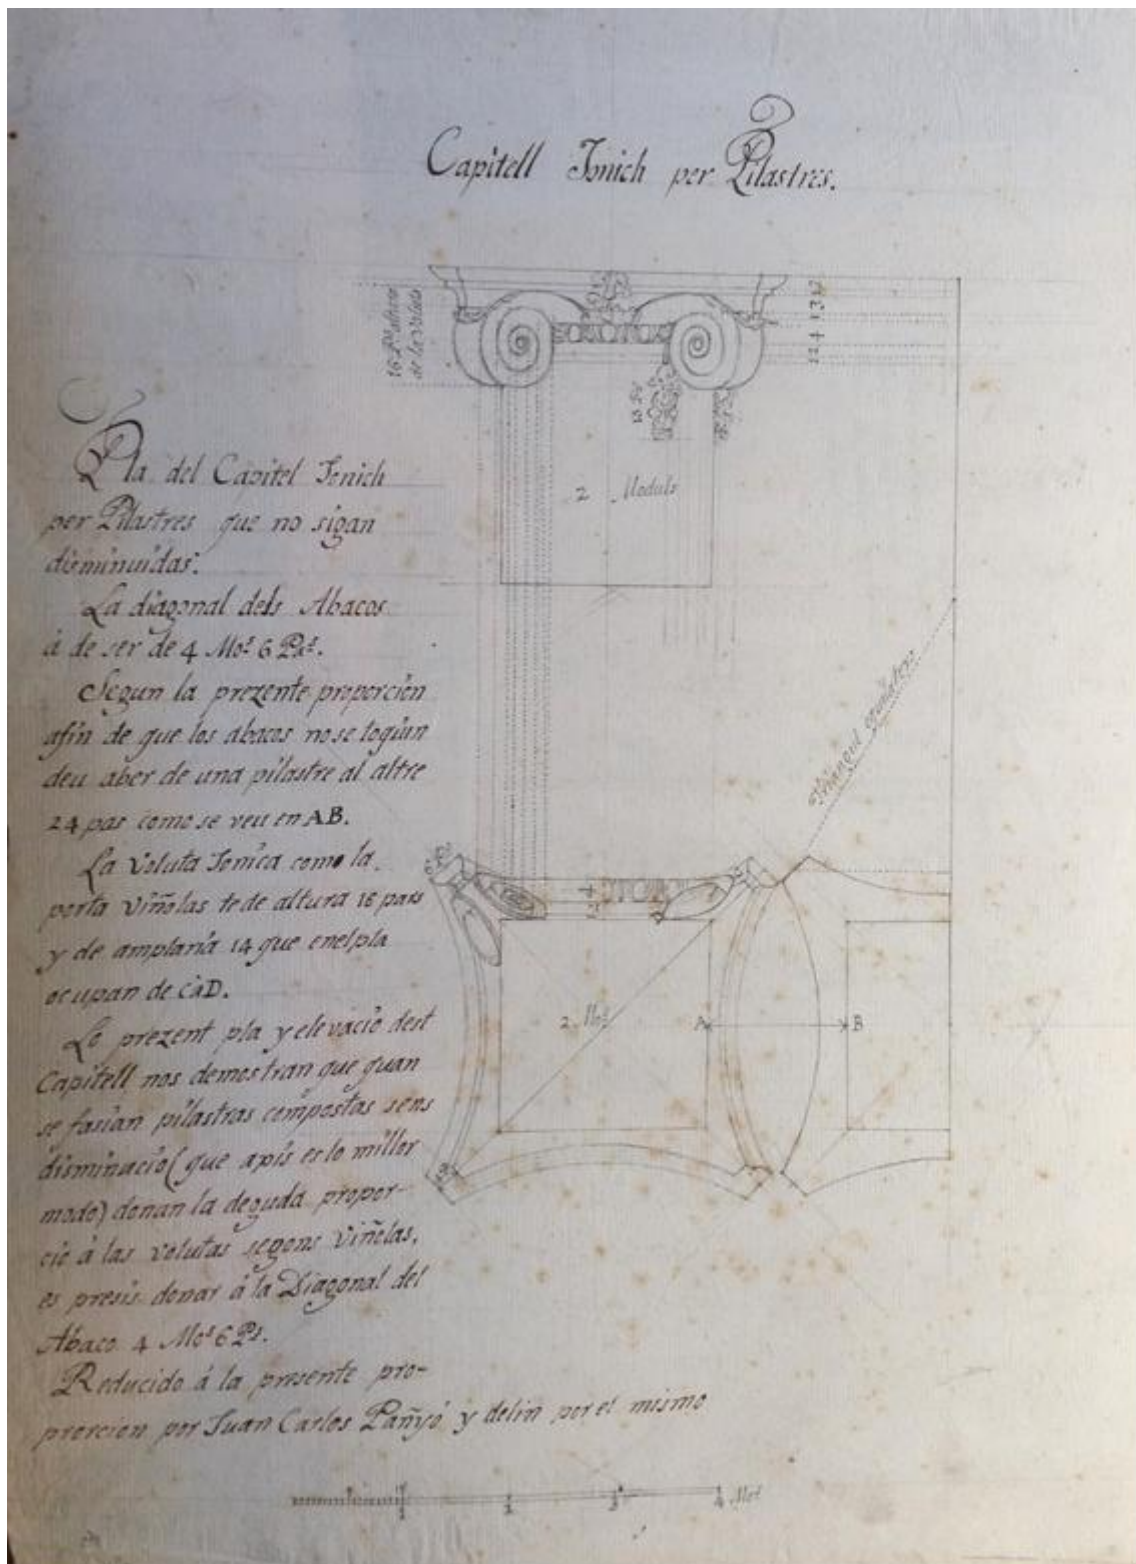 Capitell Jonich per Pilastres.
16 Ps altura
de la Voluta
2 Moduls
Pla del Capitel Jonich
per Pilastres que no sigan
disminuidas.
La diagonal dels Abacos
á de ser de 4 Mos 6 Pas.
Segun la prezente proporcion
afin de que los abacos no se toquin
deu aber de una pilastre al altre
24 pas como se veu en AB.
La Voluta Jonica como la
porta Viñolas te de altura 16 pars
y de amplaria 14 que en el pla
ocupan de CáD.
Lo prezent pla y elevacio dest
Capitell nos demostran que quan
se fasian pilastras compostas sens
disminucio (que apis es lo millor
modo) donan la deguda propor-
cio á las volutas segons Viñolas,
es presis donar á la Diagonal del
Abaco 4 Mos 6 Ps.
Reducido á la presente pro-
prorcion por Juan Carlos Pañyó y delin por el mismo
Triangul equilatro
2 Mos
A
B
1 2 3 4 Mos